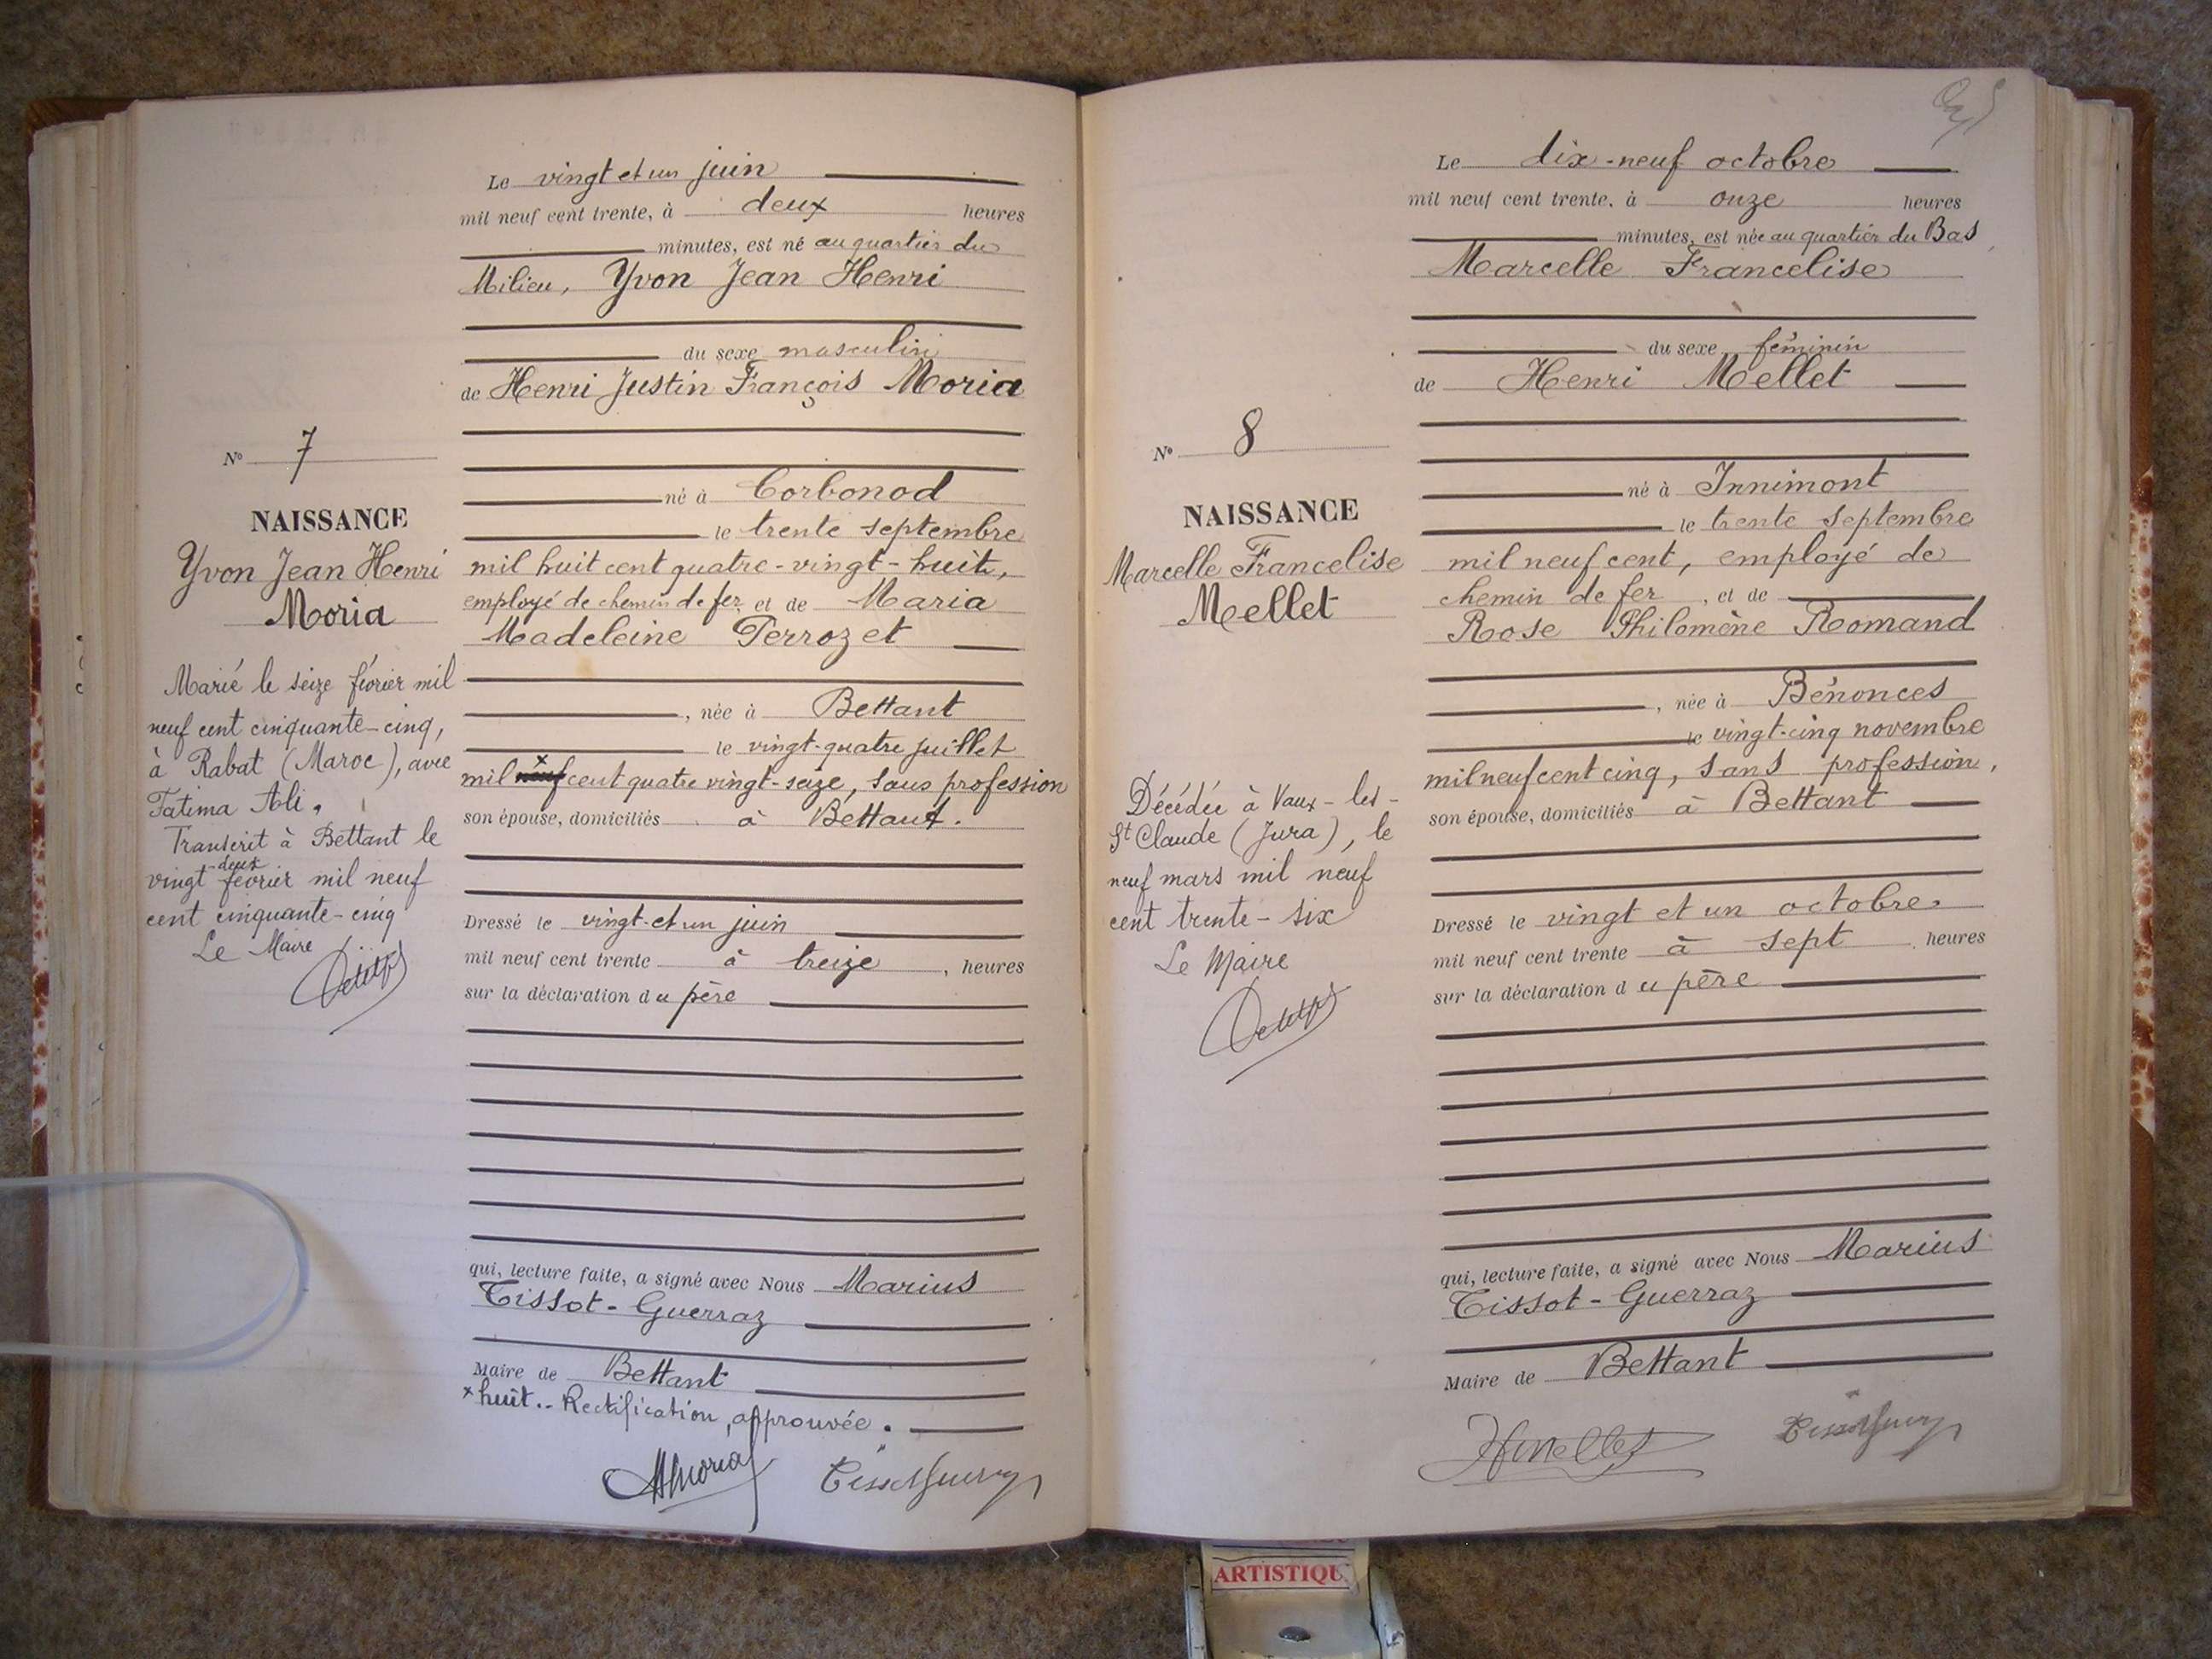 Le vingt et un juin
mil neuf cent trente, à deux heures
minutes, est né au quartier du
Milieu, Yvon Jean Henri
du sexe masculin
de Henri Justin François Moria
né à Corbonod
le trente septembre
mil huit cent quatre-vingt-huit,
employé de chemin de fer et de Maria
Madeleine Perrozet
, née à Bettant
le vingt-quatre juillet
mil neuf x cent quatre vingt-seize, sans profession
son épouse, domiciliés à Bettant.
Dressé le vingt-et un juin
mil neuf cent trente à treize, heures
sur la déclaration du père
qui, lecture faite, a signé avec Nous Marius
Tissot-Guerraz
Maire de Bettant
x huit.. Rectification, approuvée.
HMoria TissotGuerraz
No 7
NAISSANCE
Yvon Jean Henri
Moria
Marié le seize février mil
neuf cent cinquante-cinq,
à Rabat (Maroc), avec
Fatima Ali.
Transcrit à Bettant le
vingt-deux février mil neuf
cent cinquante-cinq
Le Maire
Le dix-neuf octobre
mil neuf cent trente, à onze heures
minutes, est née au quartier du Bas
Marcelle Francelise
du sexe féminin
de Henri Mellet
né à Innimont
le trente septembre
mil neuf cent, employé de
chemin de fer, et de
Rose Philomène Romand
, née à Bénonces
le vingt-cinq novembre
mil neuf cent cinq, sans profession,
son épouse, domiciliés à Bettant
Dressé le vingt et un octobre
mil neuf cent trente à sept heures
sur la déclaration du père
qui, lecture faite, a signé avec Nous Marius
Tissot-Guerraz
Maire de Bettant
HMellet TissotGuerraz
No 8
NAISSANCE
Marcelle Francelise
Mellet
Décédée à Vaux-les-
St Claude (Jura), le
neuf mars mil neuf
cent trente-six
Le Maire
ARTISTIQU